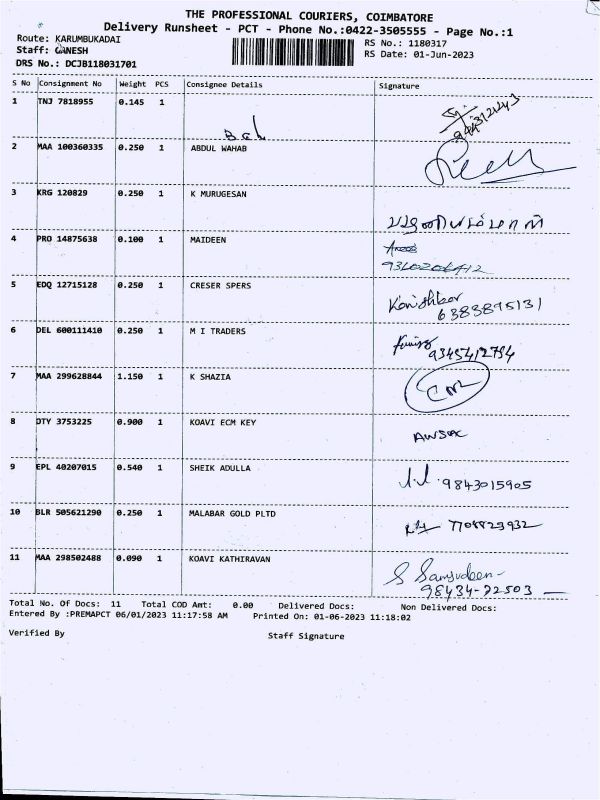 THE PROFESSIONAL COURIERS, COIMBATORE
Delivery Runsheet - PCT - Phone No.:0422-3505555 - Page No.:1
Route: KARUMBUKADAI
Staff: GANESH
DRS No.: DCJB118031701
RS No.: 1180317
RS Date: 01-Jun-2023
S No Consignment No Weight PCS Consignee Details Signature
1 TNJ 7818955 0.145 1
2 MAA 100360335 0.250 1 ABDUL WAHAB
3 KRG 120829 0.250 1 K MURUGESAN
4 PRO 14875638 0.100 1 MAIDEEN
5 EDQ 12715128 0.250 1 CRESER SPERS
6383895131
6 DEL 600111410 0.250 1 M I TRADERS
9345412794
7 MAA 299628844 1.150 1 K SHAZIA
8 DTY 3753225 0.900 1 KOAVI ECM KEY
9 EPL 40207015 0.540 1 SHEIK ADULLA
9843015905
10 BLR 505621290 0.250 1 MALABAR GOLD PLTD
11 MAA 298502488 0.090 1 KOAVI KATHIRAVAN
S Samsudeen
98434-22503
Total No. Of Docs: 11 Total COD Amt: 0.00 Delivered Docs: Non Delivered Docs:
Entered By :PREMAPCT 06/01/2023 11:17:58 AM Printed On: 01-06-2023 11:18:02
Verified By Staff Signature